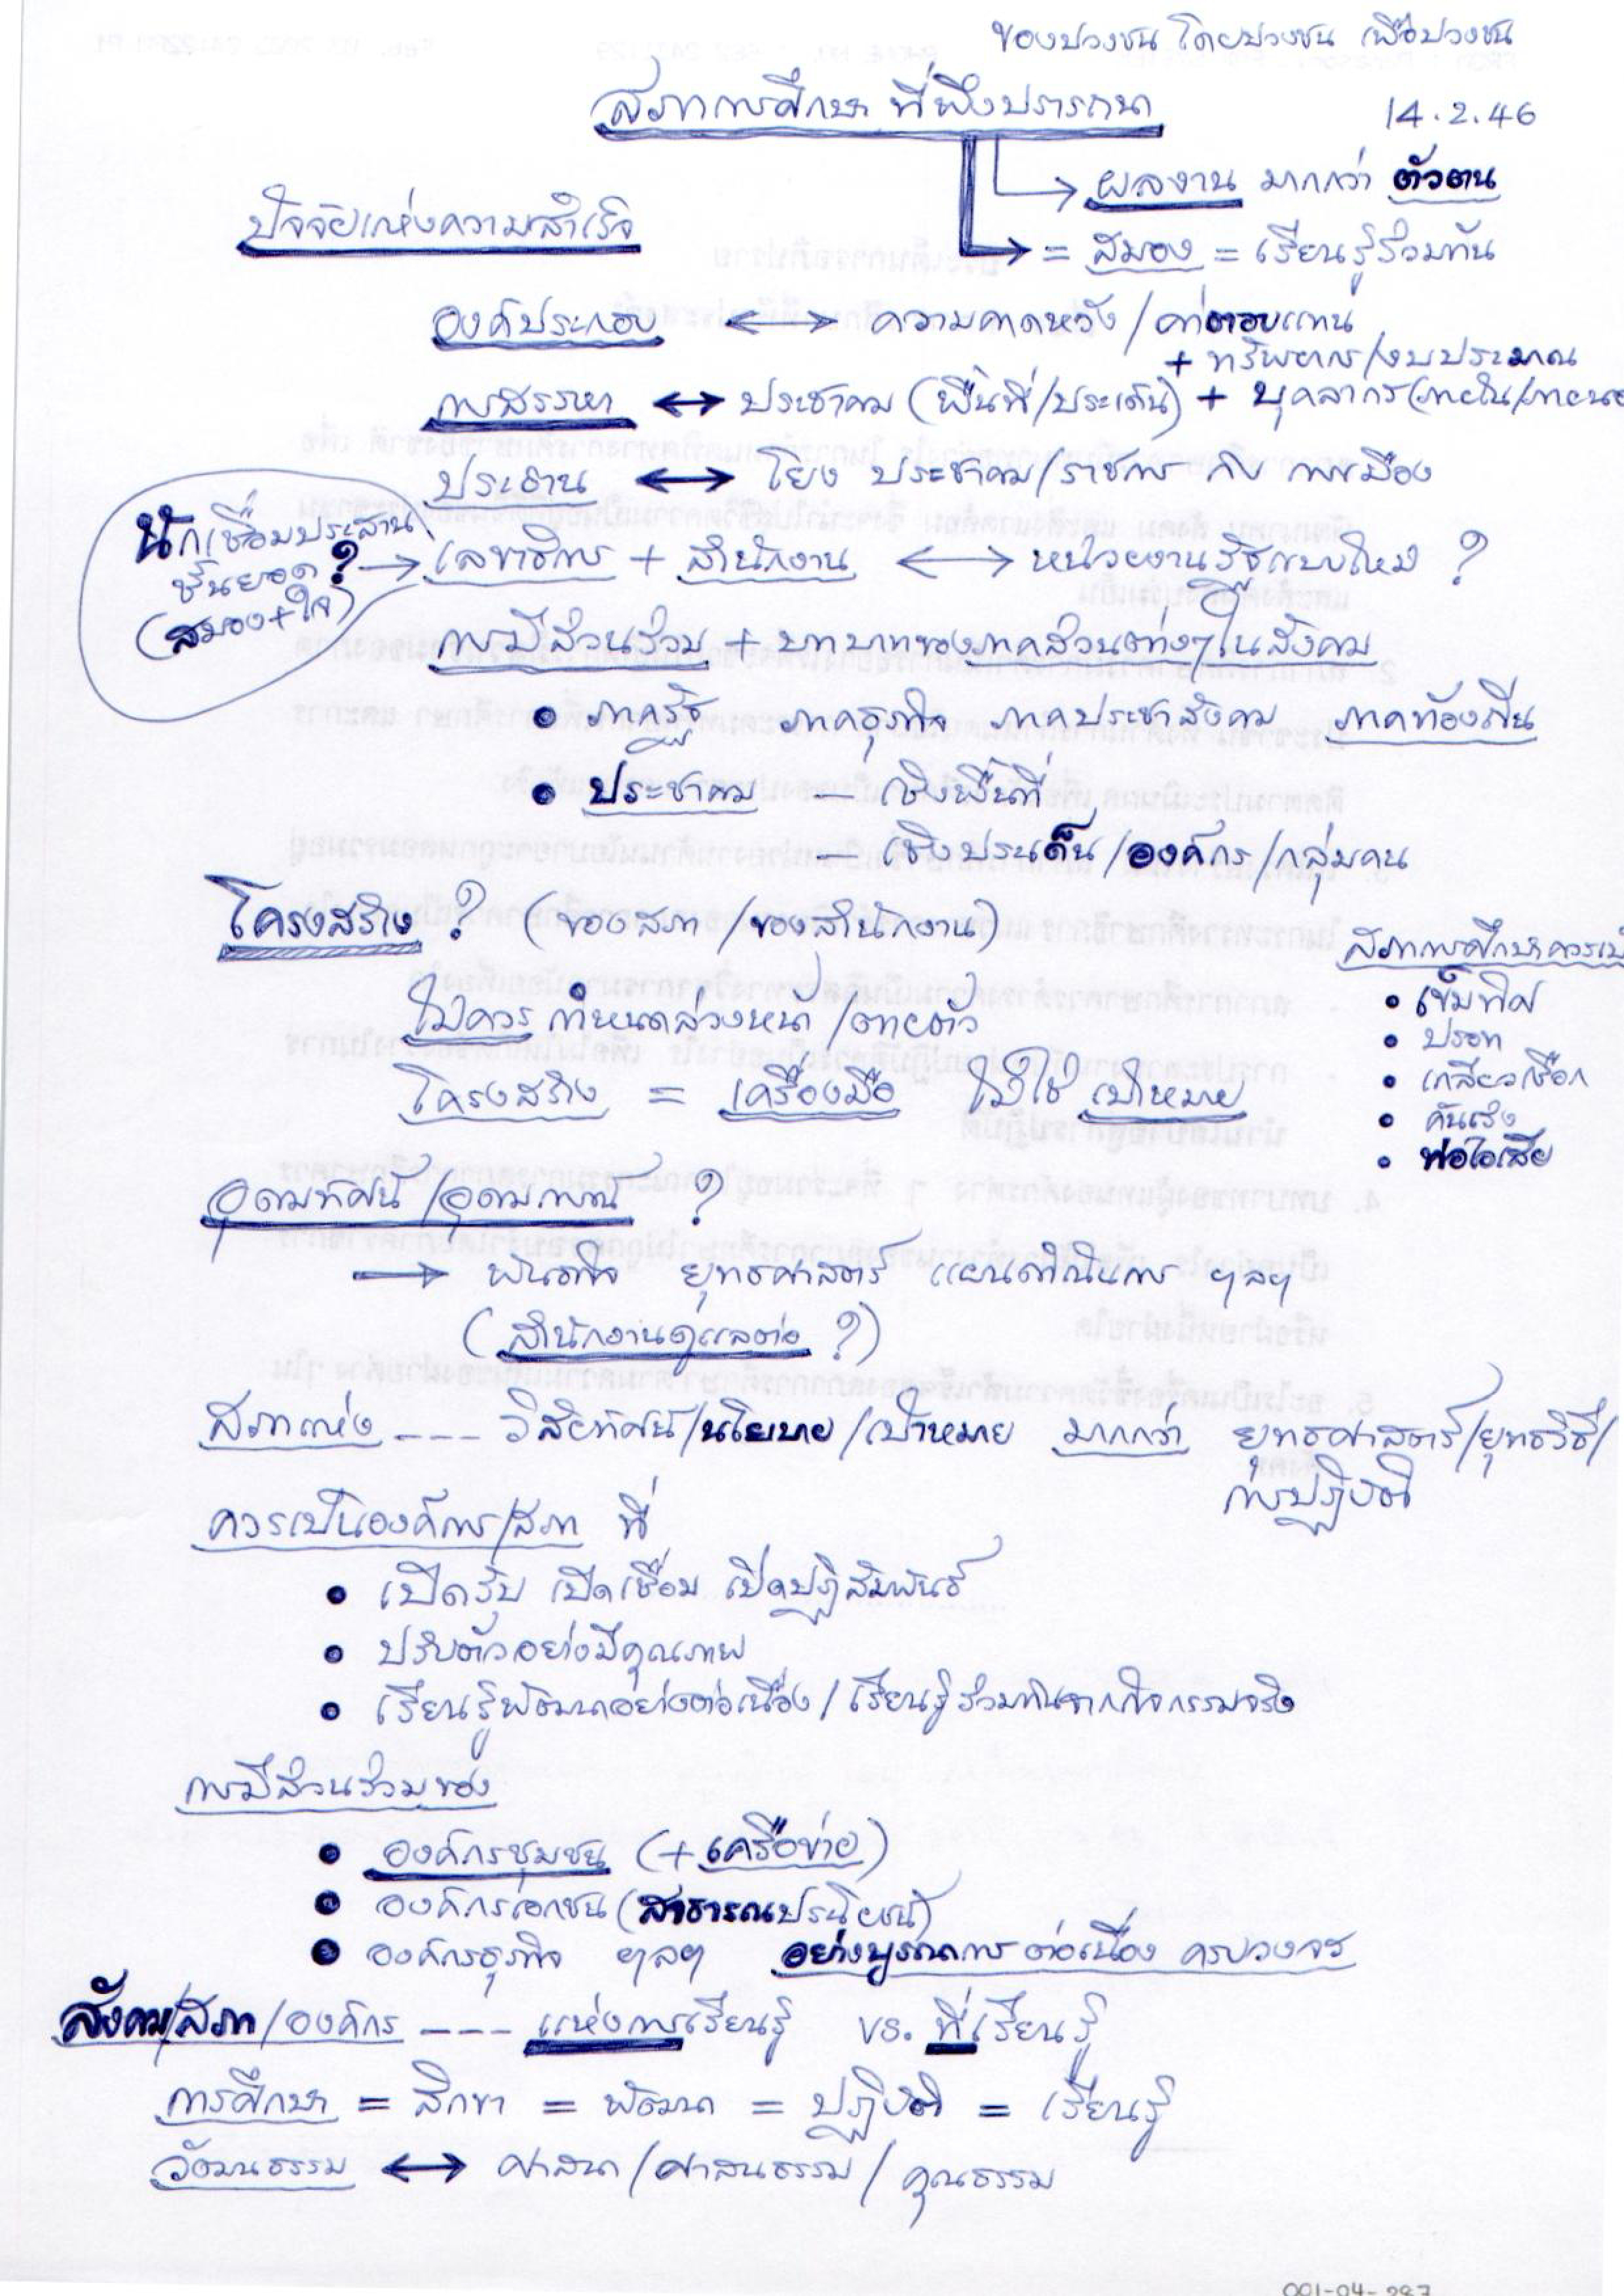 ของปวงชน โดยปวงชน เพื่อปวงชน
สภาการศึกษา ที่พึงปรารถนา
14.2.46
→ ผลงาน มากกว่า ตัวตน
ปัจจัยแห่งความสำเร็จ
→ = สมอง = เรียนรู้ร่วมกัน
องค์ประกอบ ↔ ความคาดหวัง / ค่าตอบแทน
+ ทรัพยากร/งบประมาณ
การสรรหา ↔ ประชาคม (พื้นที่/ประเด็น) + บุคลากร (ภายใน/ภายนอ
ประธาน ↔ โยง ประชาคม/ราชการ กับ การเมือง
นักเชื่อมประสาน
ชั้นยอด ?
(สมอง+ใจ)
→ เลขาธิการ + สำนักงาน ↔ หน่วยงานรัฐแบบใหม่ ?
การมีส่วนร่วม + บทบาทของภาคส่วนต่างๆในสังคม
• ภาครัฐ ภาคธุรกิจ ภาคประชาสังคม ภาคท้องถิ่น
• ประชาคม – เชิงพื้นที่
– เชิงประเด็น/องค์กร/กลุ่มคน
โครงสร้าง ? (ของสภา /ของสำนักงาน)
ไม่ควร กำหนดล่วงหน้า /ตายตัว
โครงสร้าง = เครื่องมือ ไม่ใช่ เป้าหมาย
สภาการศึกษาควรเป็
• เข็มทิศ
• ปรอท
• เกลียวเชือก
• คันเร่ง
• ท่อไอเสีย
อุดมทัศน์ /อุดมการณ์ ?
→ พันธกิจ ยุทธศาสตร์ แผนดำเนินการ ฯลฯ
(สำนักงานดูแลต่อ ?)
สภาแห่ง --- วิสัยทัศน์/นโยบาย/เป้าหมาย มากกว่า ยุทธศาสตร์/ยุทธวิธี/
การปฏิบัติ
ควรเป็นองค์การ/สภา ที่
• เปิดรับ เปิดเชื่อม เปิดปฏิสัมพันธ์
• ปรับตัวอย่างมีคุณภาพ
• เรียนรู้พัฒนาอย่างต่อเนื่อง / เรียนรู้ร่วมกันจากกิจกรรมจริง
การมีส่วนร่วมของ
• องค์กรชุมชน (+เครือข่าย)
• องค์กรเอกชน (สาธารณประโยชน์)
• องค์กรธุรกิจ ฯลฯ อย่างบูรณาการ ต่อเนื่อง ครบวงจร
สังคม/สภา/องค์กร --- แห่งการเรียนรู้ vs. ที่เรียนรู้
การศึกษา = สิกขา = พัฒนา = ปฏิบัติ = เรียนรู้
วัฒนธรรม ↔ ศาสนา/ศาสนธรรม/ คุณธรรม
001-04-287